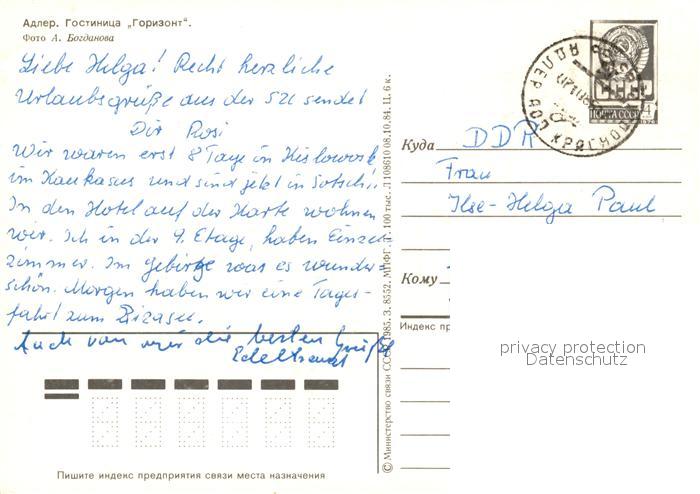 Адлер. Гостиница „Горизонт“.
Фото А. Богданова
Liebe Helga! Recht herzliche
Urlaubsgrüße aus der SU sendet
Dir Rosi
Wir waren erst 8 Tage in Kislowosk
im Kaukasus und sind jetzt in Sotschi.
In den Hotel auf der Karte wohnen
wir. Ich in der 4. Etage, haben Einzel
zimmer. Im Gebirge was es wunder-
schön. Morgen haben wir eine Tages-
fahrt zum Rizasee.
Auch von mir die besten Grüße
Edeltraud
Пишите индекс предприятия связи места назначения
© Министерство связи СССР. 1985. З. 8552. МПФГ. Д. 100 тыс. Л 108610 08.10.84. Ц. 6 к.
ПОЧТА СССР
4
АДЛЕР
Куда DDR
Frau
Ilse-Helga Paul
Кому
Индекс пр
privacy protection
Datenschutz